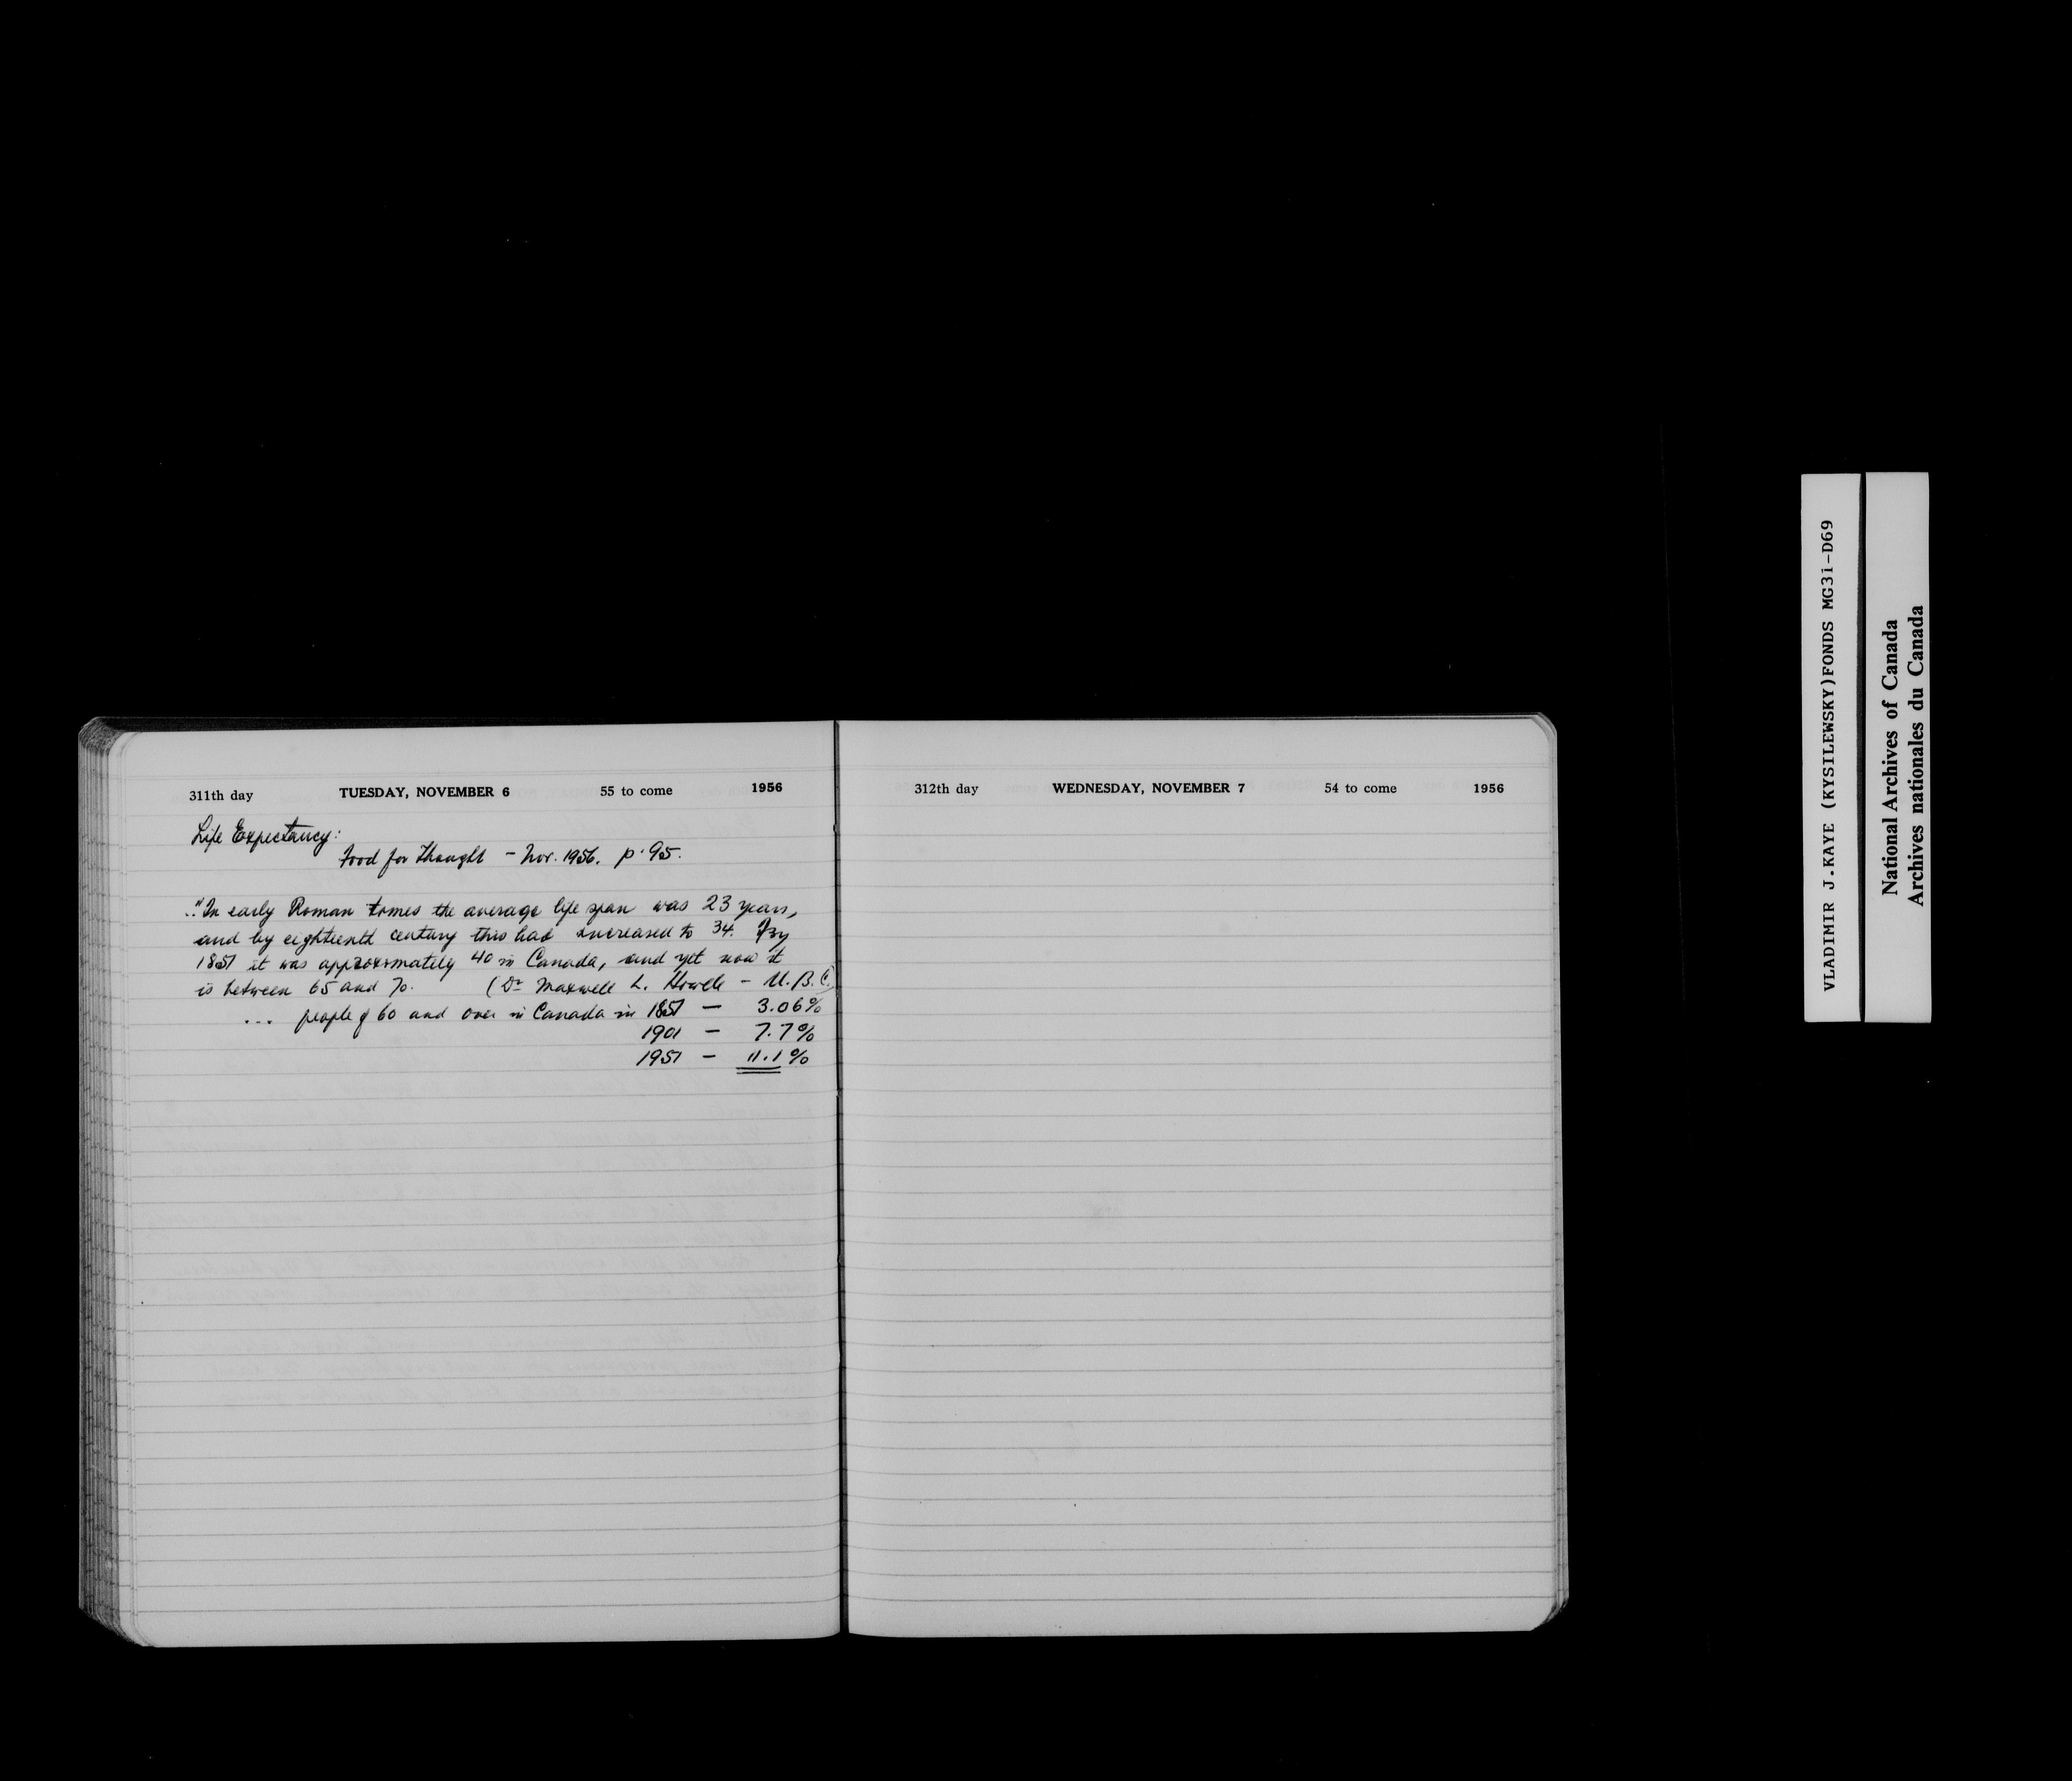 311th day TUESDAY, NOVEMBER 6 55 to come 1956
Life Expectancy:
Food for Thought - Nov. 1956. p. 95.
.."In early Roman times the average life span was 23 years,
and by eighteenth century this had increased to 34. By
1851 it was approximately 40 in Canada, and yet now it
is between 65 and 70. (Dr Maxwell L. Howell - U.B.C.)
... people of 60 and over in Canada in 1851 — 3.06%
1901 — 7.7%
1951 — 11.1%
312th day WEDNESDAY, NOVEMBER 7 54 to come 1956
VLADIMIR J.KAYE (KYSILEWSKY)FONDS MG31-D69
National Archives of Canada
Archives nationales du Canada